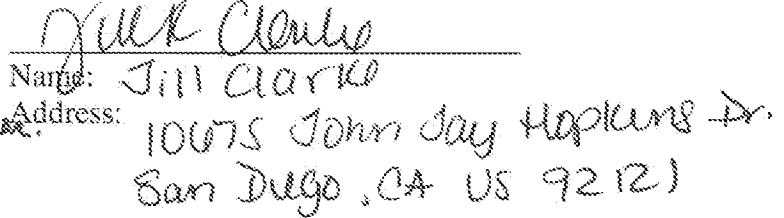 Jill Clarke
Name: Jill Clarke
Address:
10675 John Jay Hopkins Dr.
San Diego, CA US 92121